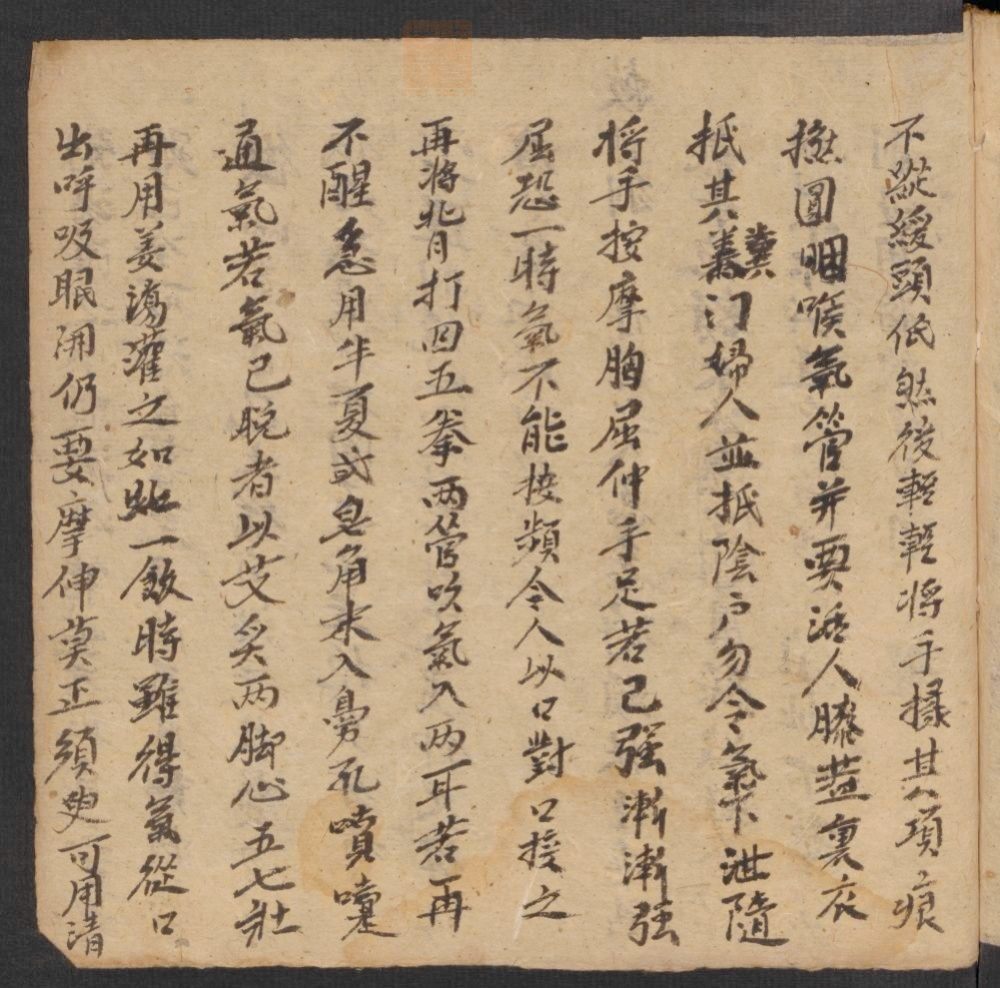 不縱緩頭低然後輕輕將手揉其項痕
撚圓咽喉氣管并要活人膝蓋裏衣
抵其糞门婦人並抵陰户勿令氣下泄隨
将手按摩胸屈伸手足若已强漸漸强
屈恐一時氣不能接頻令人以口對口接之
再將背打四五拳两管吹氣入两耳若再
不醒急用半夏或皂角末入鼻孔噴嚏
通氣若氣已脱者以艾炙两脚心五七壯
再用姜湯灌之如此一飯時雖得氣從口
出呼吸眼開仍要摩伸莫止須臾可用清